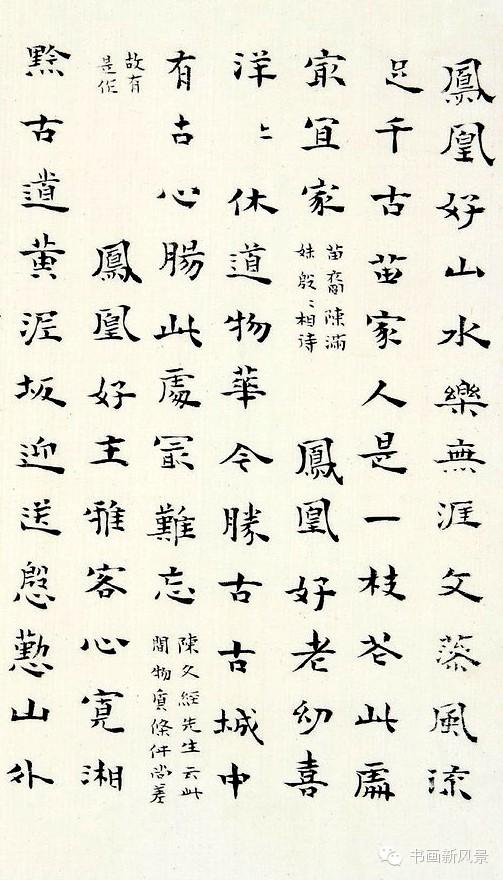 鳳凰好山水樂無涯文風流
足千古苗家人是一枝花此處
冣宜家
苗裔陳滿
妹殷〻相待
鳳凰好老幼喜
洋〻休道物華今勝古古城中
有古心腸此處冣難忘
陳文經先生云此
間物質條件尚差
故有
是作
鳳凰好主雅客心寬湘
黔古道黄泥坂迎送慇懃山外
书画新风景